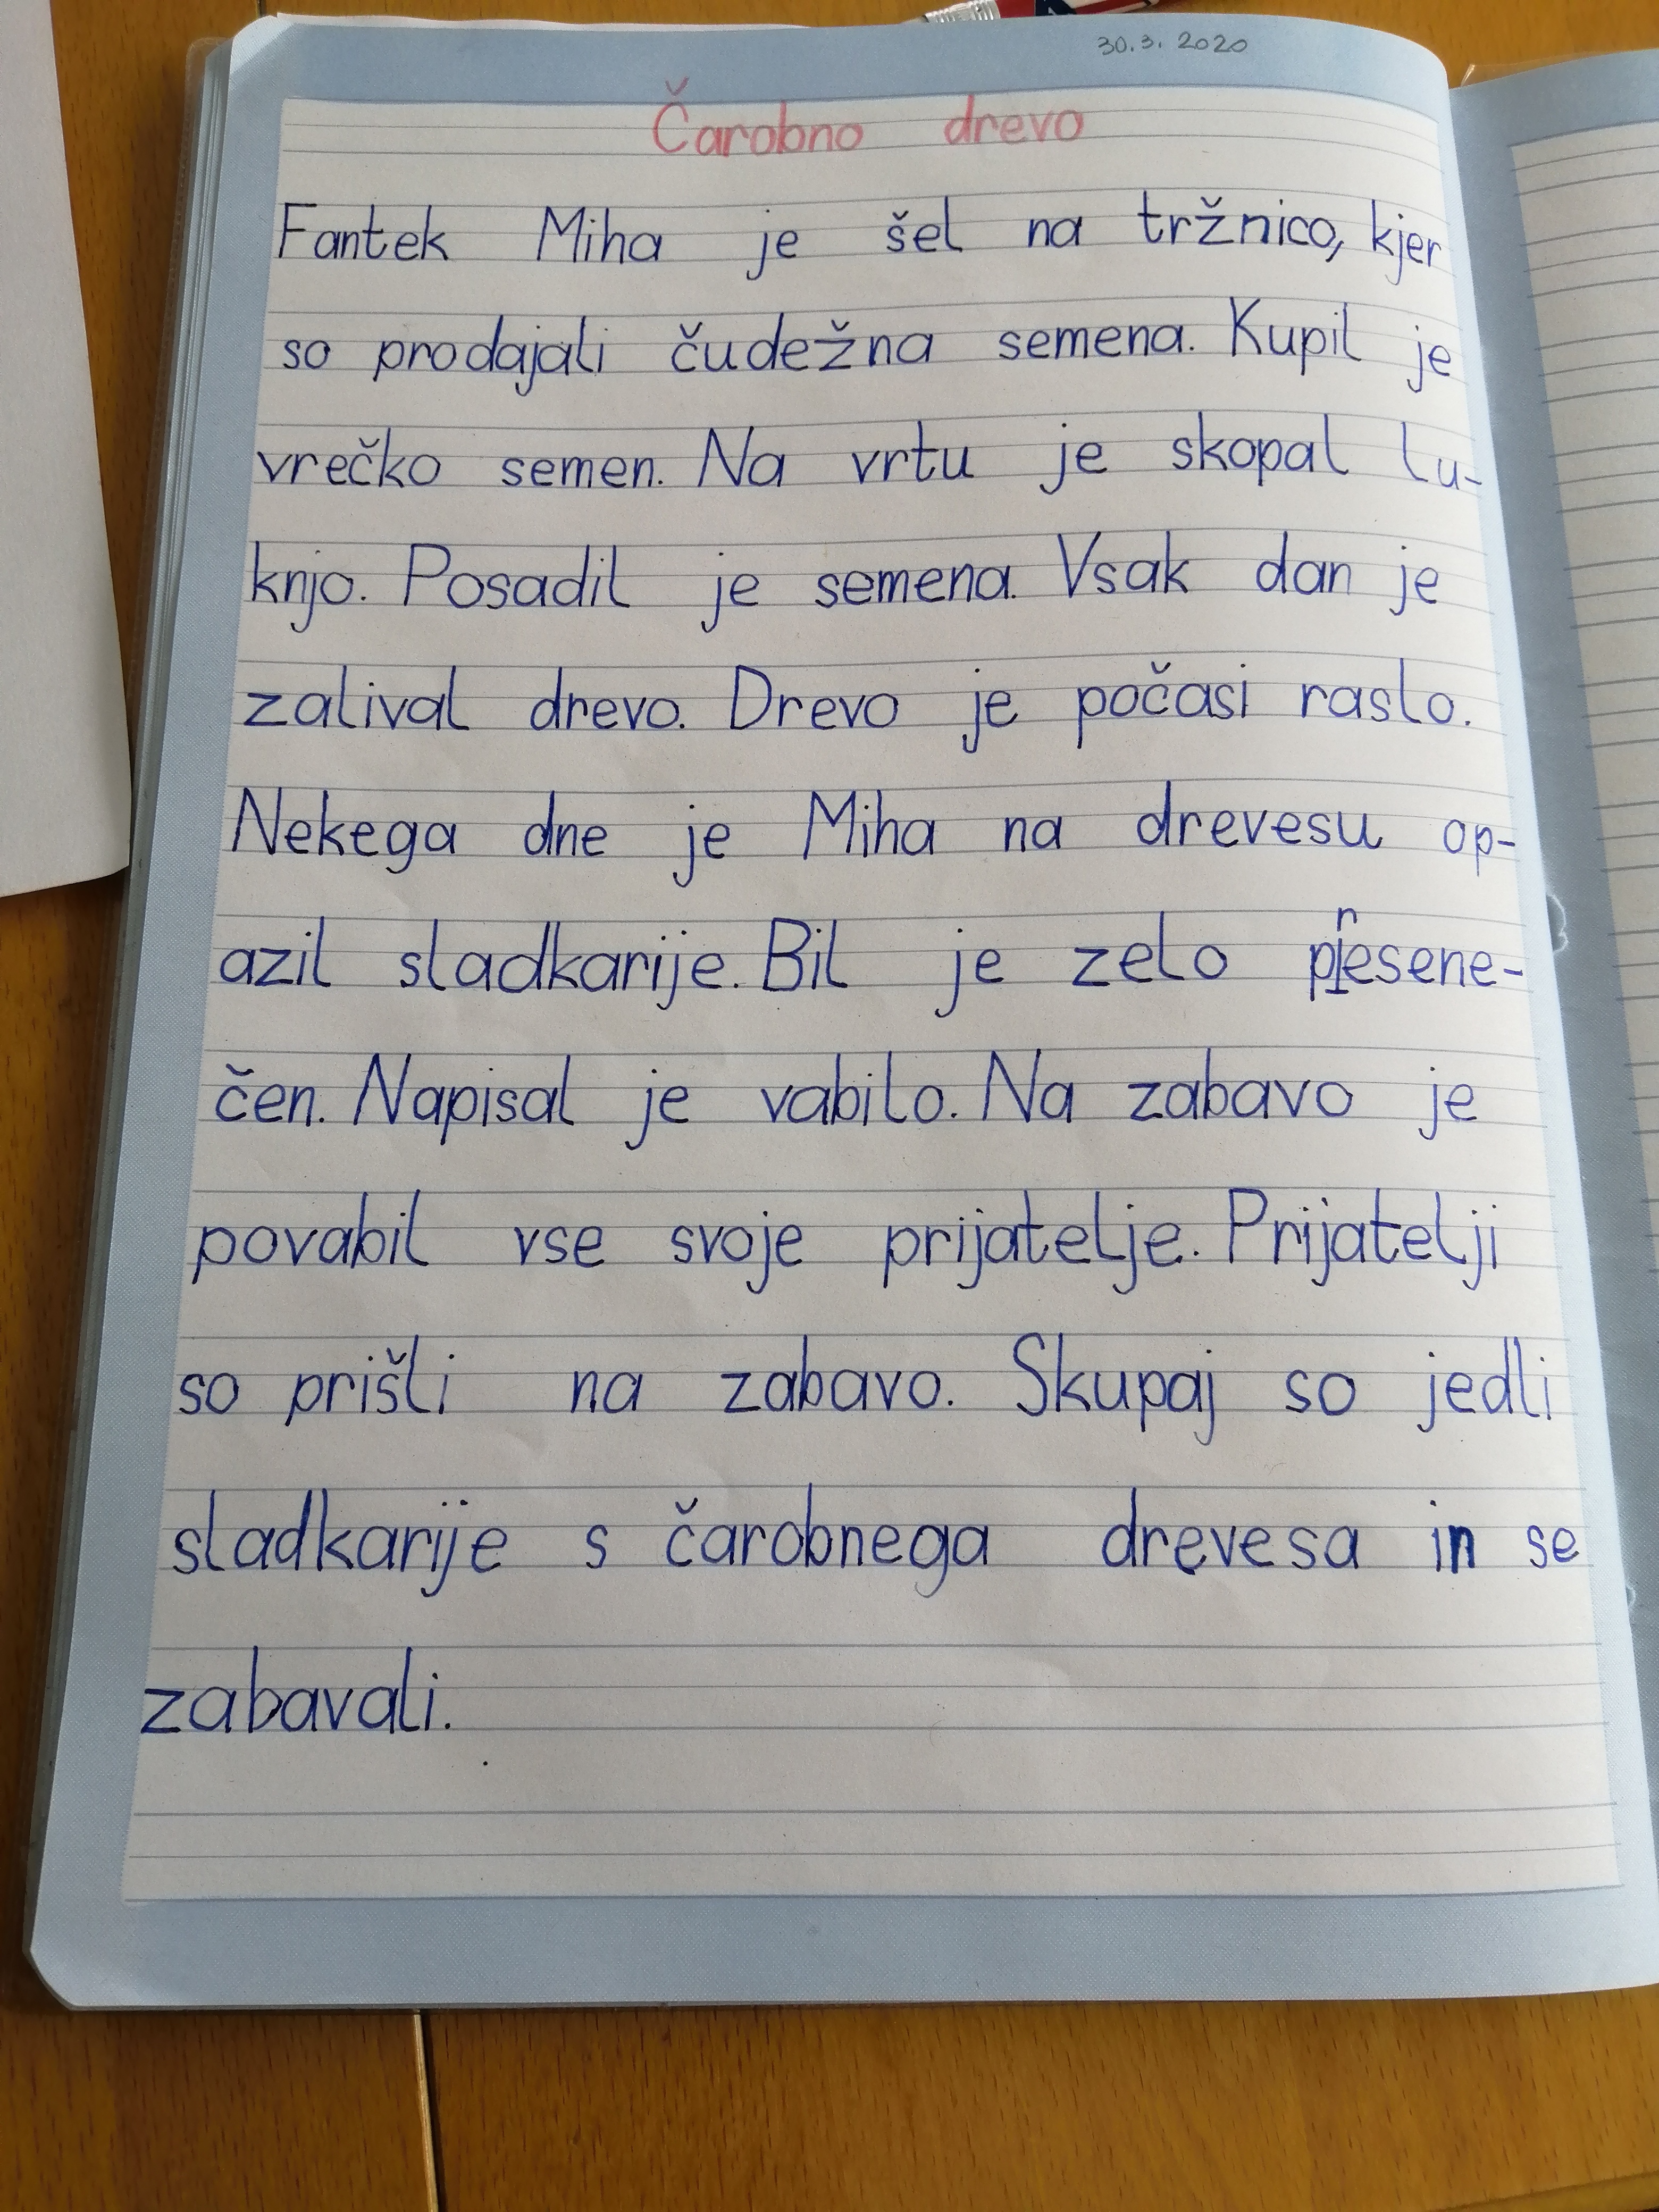 30.3. 2020
Čarobno drevo
Fantek Miha je šel na tržnico, kjer
so prodajali čudežna semena. Kupil je
vrečko semen. Na vrtu je skopal lu-
knjo. Posadil je semena. Vsak dan je
zalival drevo. Drevo je počasi raslo.
Nekega dne je Miha na drevesu op-
azil sladkarije. Bil je zelo presene-
čen. Napisal je vabilo. Na zabavo je
povabil vse svoje prijatelje. Prijatelji
so prišli na zabavo. Skupaj so jedli
sladkarije s čarobnega drevesa in se
zabavali.